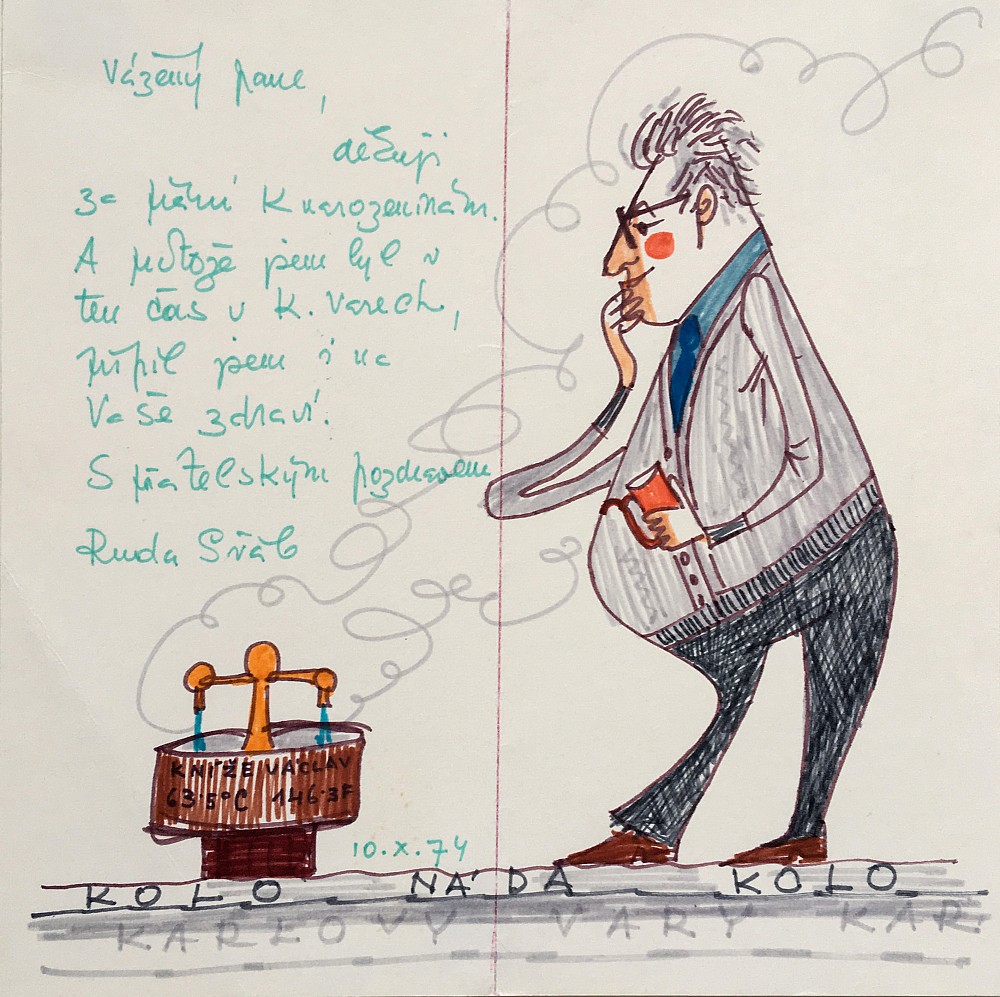 Vážený pane,
děkuji
za přání k narozeninám.
A protože jsem byl v
ten čas v K. Varech,
připil jsem i na
Vaše zdraví.
S přátelským pozdravem
Ruda
KNÍŽE VÁCLAV
63·5°C 146·3F
10.X.74
KOLO NÁ DA KOLO
KARLOVY VARY KAR